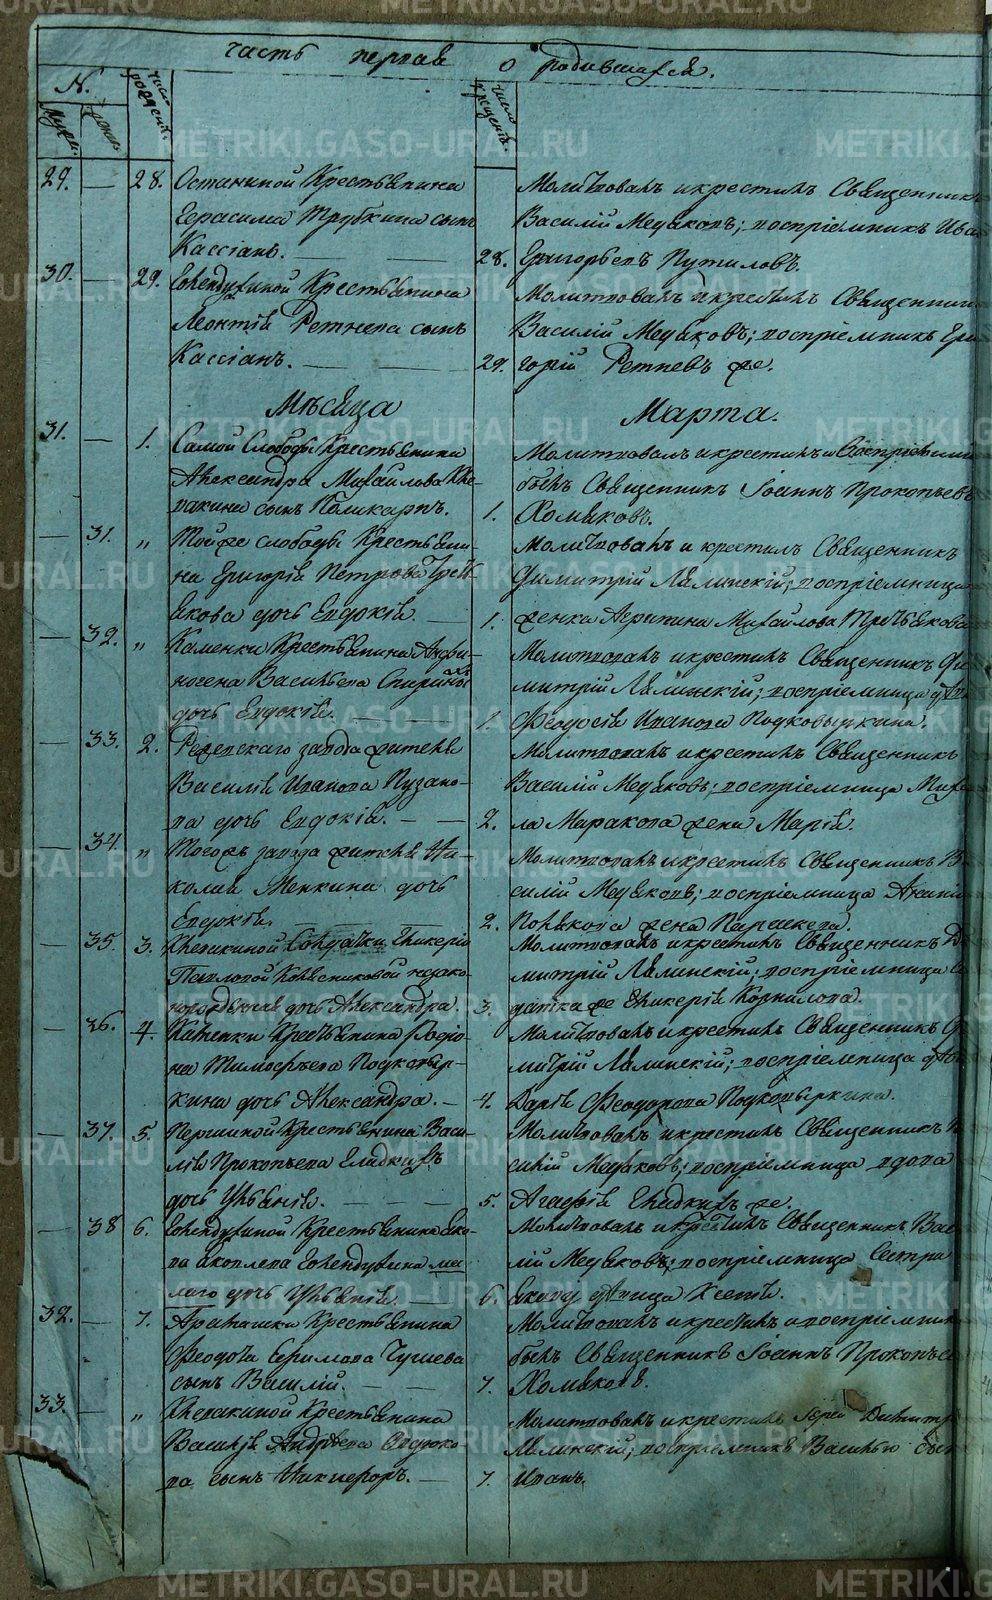 METRIKI.GASO-URAL.RU
часть первая о родившихся.
N.
Муж. женск. число рожденія. число крещенія.
29. — 28. Останиной Крестьянина
Герасима Трубкина сынъ
Кассіанъ.
Молитвовалъ и крестилъ Священникъ
Василій Медяковъ; воспріемникъ Ива
28. Григорьевъ Путиловъ.
30. — 29. Крестьянина
Леонтія Ретнева сынъ
Кассіанъ.
Молитвовалъ и крестилъ Священник
Василій Медяковъ; воспріемникъ Гри
29. горій Ретневъ же.
Мѣсяца Марта.
31. — 1. Самой Слободы Крестьянина
Александра Михайлова Хле-
пакина сынъ Поликарпъ.
Молитвовалъ и крестилъ и воспріемник
былъ Священникъ Іоаннъ Прокопьевъ
1. Хомяковъ.
— 31. " Тойже слободы Крестьяни-
на Григорія Петрова Треть-
якова дочь Евдокія.
Молитвовалъ и крестилъ Священникъ
Димитрій Лялинскій; воспріемница
1. женка Агрипина Михайлова Третьякова
— 32. " Каменки Крестьянина Андри-
Васильева
дочь Евдокія.
Молитвовалъ и крестилъ Священникъ Ди-
митрій Лялинскій; воспріемница
1. Феодосія Иванова Подковыркина.
— 33. 2. Режевскаго завода жителя
Василія Иванова Пузано-
ва дочь Евдокія.
Молитвовалъ и крестилъ Священникъ
Василій Медяковъ; воспріемница Миха
2. ла Маракова жена Марія.
— 34. " Тогожъ завода жителя Ни-
колая Менкина дочь
Евдокія.
Молитвовалъ и крестилъ Священникъ Ва
силій Медяковъ; воспріемница
2. Полякова жена Параскева.
— 35. 3. Солдатки Гликеріи
Павловой Колесниковой незако-
норожденная дочь Александра.
Молитвовалъ и крестилъ Священникъ Ди
митрій Лялинскій; воспріемница
3. же Гликерія Корнилова.
— 36. 4. Каменки Крестьянина Родіо-
на Тимофѣева Подковыр-
кина дочь Александра.
Молитвовалъ и крестилъ Священникъ Ди
митрій Лялинскій; воспріемница
4. Дарія Феодорова Подковыркина.
— 37. 5. Першиной Крестьянина Васи-
лія Прокопьева Гладкихъ
дочь Уліанія.
Молитвовалъ и крестилъ Священникъ Ва
силій Медяковъ; воспріемница вдова
5. Агафія Гладкихъ же.
— 38 6. Крестьянина Яко-
ва Яковлева ма-
лаго дочь Уліанія
Молитвовалъ и крестилъ Священникъ Васи
лій Медяковъ; воспріемница сестра
6. Якову дѣвица Ксенія.
32. — 7. Арамашки Крестьянина
Феодота Ефимова Чушева
сынъ Василій.
Молитвовалъ и крестилъ и воспріемник
былъ Священникъ Іоаннъ Прокопьев
7. Хомяковъ.
33. — " Крестьянина
Василія Андреева
сынъ Никифоръ.
Молитвовалъ и крестилъ Іерей Димитрі
Лялинскій; воспріемникъ Василью сын
7. Иванъ.